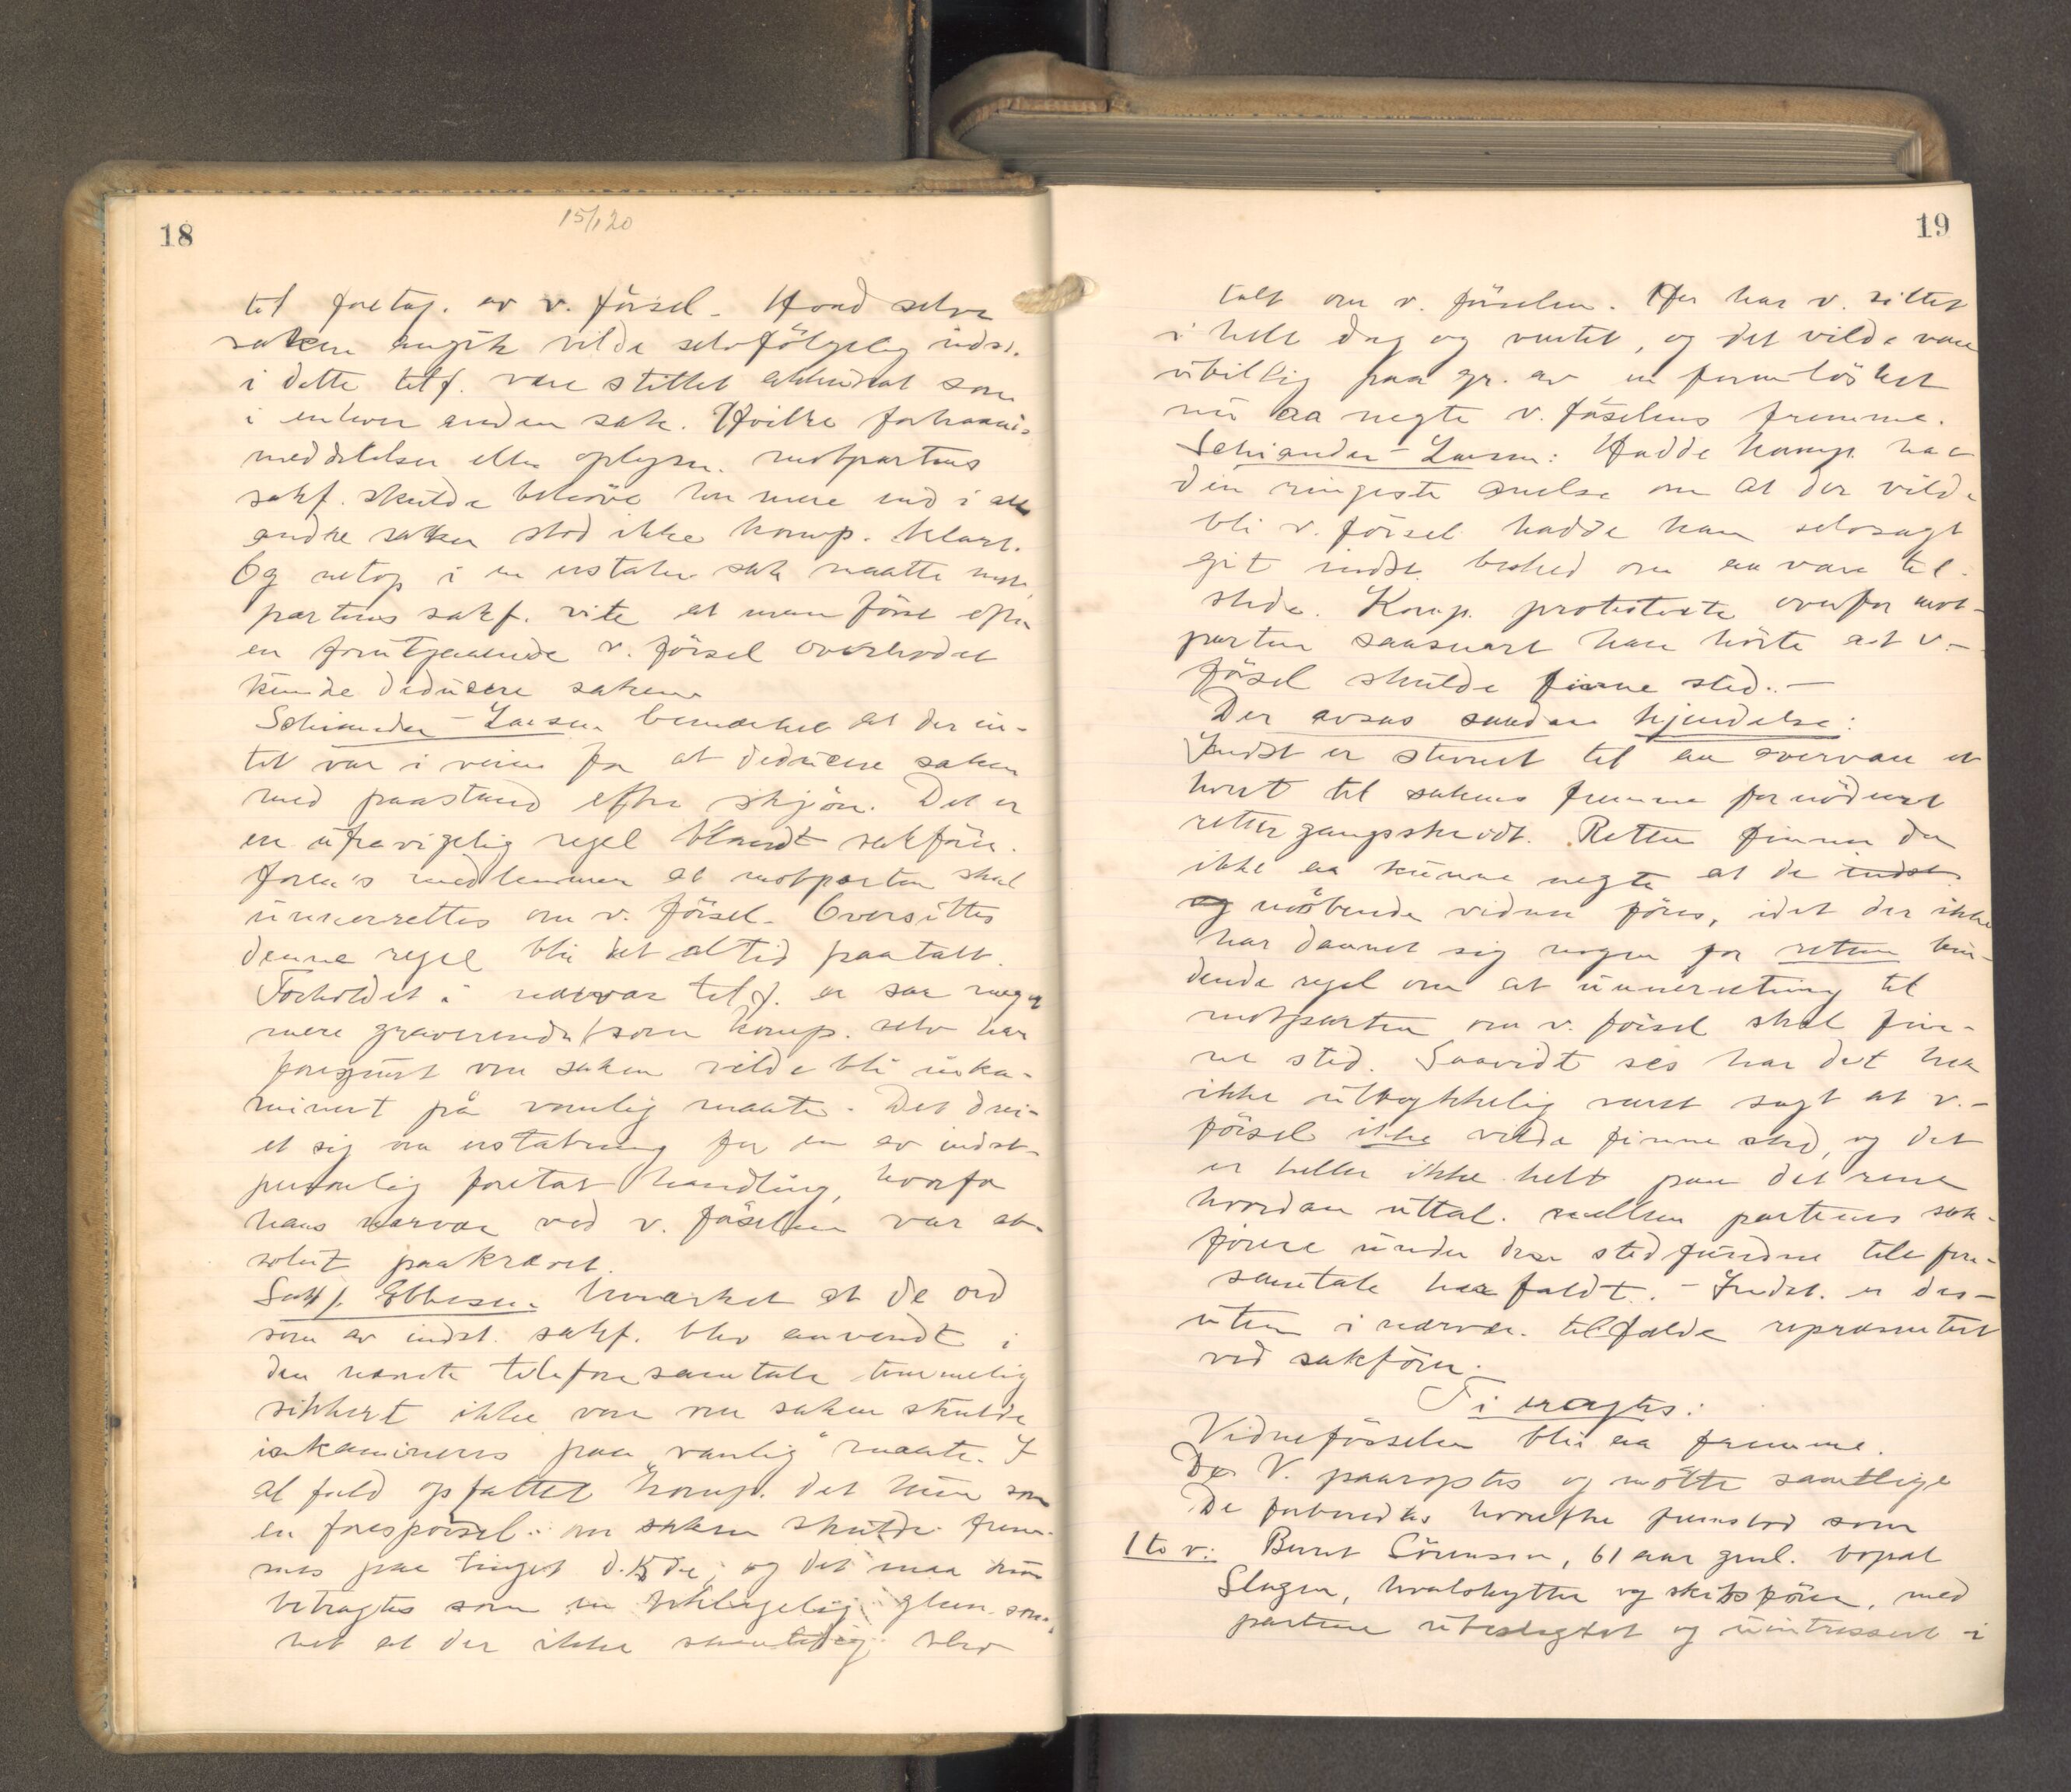 18
15/1 20
til foretag. av v. försel. Hvad selve
saken angik vilde selvfölgelig indst.
i dette tilf. være stillet akkurat som
i enhver anden sak. Hvilke forhaands
meddelelser eller oplysn. motpartens
sakf. skulde behöve her mere end i alle
andre saker stod ikke komp. klart.
Og netop i en erstatn. sak maatte mot-
partens sakf. vite at man först efter
en forutgaaende v. försel overhodet
kunde deducere saken.
Schiander-Larsen bemærket at der in-
tet var i veien for at deducere saken
med paastand efter skjön. Det er
en ufravigelig regel blandt sakförer-
foren's medlemmer at motparten skal
underrettes om v. försel. Oversittes
denne regel blir det altid paatalt.
Forholdet i nærvær. tilf. er saa meget
mere graverende som komp. selv har
forespurt om saken vilde bli inka-
minert på vanlig maate. Det drei-
et sig om erstatning for en av indst.
personlig foretat handling, hvorfor
hans nærvær ved v. förselen var ab-
solut paakrævet.
Sakf. Ebbesen bemærket at de ord
som av indst. sakf. blev anvendt i
den nævnte telefonsamtale temmelig
sikkert ikke var om saken skulde
inkamineres paa "vanlig" maate. I
al fald opfattet komp. det kun som
en forespörsel om saken skulde frem-
mes paa tinget d. 15de, og det maa kun
betragtes som en beklagelig glem som-
het at der ikke samtidig blev
19
talt om v. förselen. Her har v. sittet
i hele dag og ventet, og det vilde være
ubillig paa gr. av en formlöshet
nu aa negte v. förselens fremme.
Schiander-Larsen: Hadde komp. hat
den ringeste anelse om at der vilde
bli v. försel hadde han selvsagt
git indst. besked om aa være til-
stede. Komp. protesterte overfor mot-
parten saasnart han hörte at v.-
försel skulde finne sted. -
Der avsas saadan kjendelse:
Indst er stevnet til aa overvære et-
hvert til sakens fremme fornödent
rettergangsskridt. Retten finner da
ikke aa kunne negte at de indst.
og mötende vidner föres, idet der ikke
har dannet sig nogen for retten bin-
dende regel om at underretning til
motparten om v. försel skal fin-
ne sted. Saavidt ses har det her
ikke uttrykkelig været sagt at v.-
försel ikke vilde finne sted, og det
er heller ikke helt paa det rene
hvordan uttal. mellem partenes sak-
förere under den stedfundne telefon-
samtale har faldt. - Indst. er des-
uten i nærvær. tilfælde repræsentert
ved sakförer.
Ti eragtes:
Vidneförselen blir aa fremme.
De V. paaroptes og mötte samtlige
De forberedtes hvorefter fremstod som
1te v: Bernt Sörensen, 61 aar gml. bopæl
Slagen, hvalskytter og skibsförer, med
partene ubeslegtet og uinteressert i